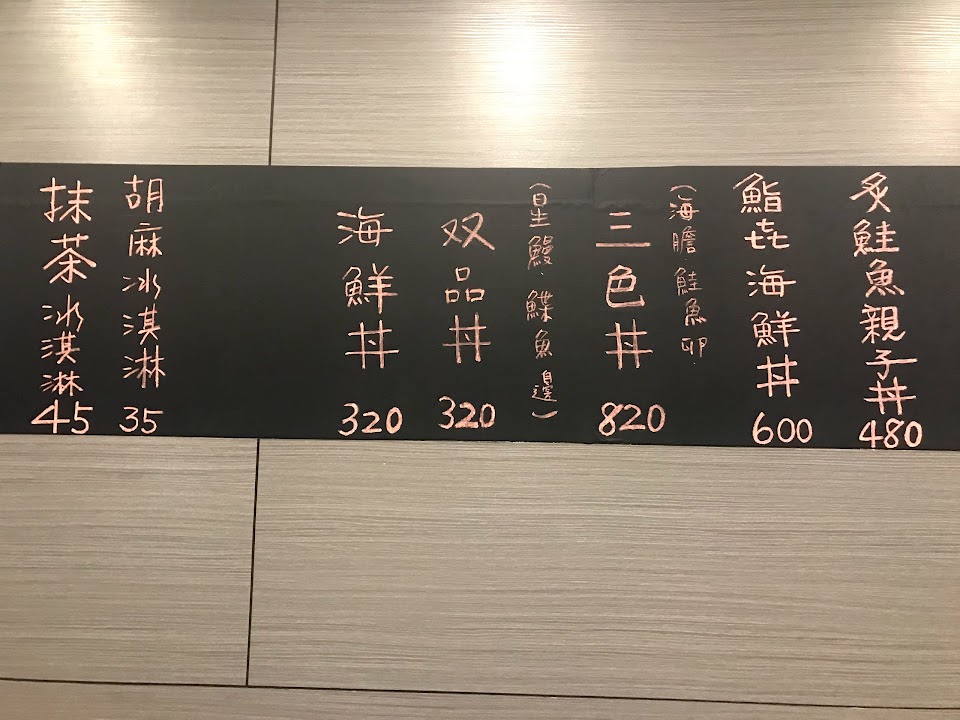 炙鮭魚親子丼
480
鮨㐂海鮮丼
600
(海膽 鮭魚卵
三色丼
820
(星鰻.鰈魚邊)
双品丼
320
海鮮丼
320
胡麻冰淇淋
35
抹茶冰淇淋
45